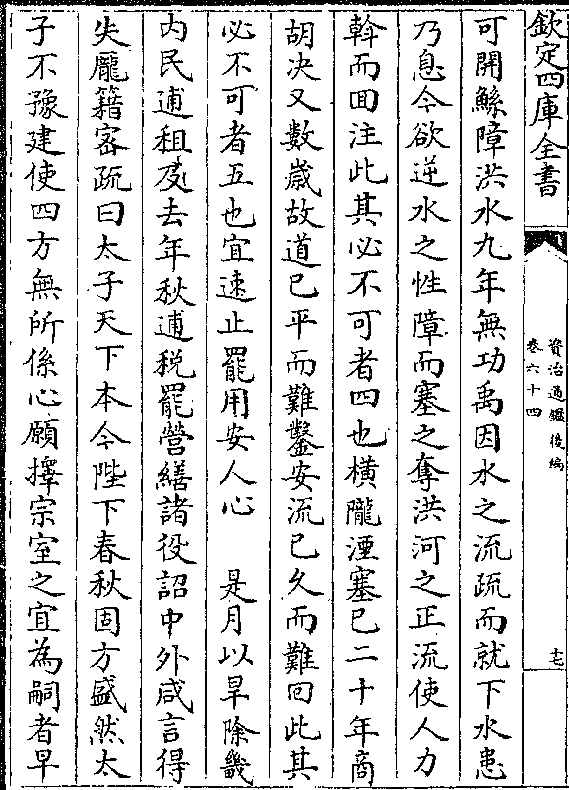 欽定四庫全書
資治通鑑後編
卷六十四
十七
可開鯀障洪水九年無功禹因水之流疏而就下水患
乃息今欲逆水之性障而塞之奪洪河之正流使人力
斡而回注此其必不可者四也橫隴湮塞已二十年商
胡决又數歲故道已平而難鑿安流已久而難回此其
必不可者五也宜速止罷用安人心 是月以旱除畿
内民逋租及去年秋逋税罷營繕諸役詔中外咸言得
失龎籍宻疏曰太子天下本今陛下春秋固方盛然太
子不豫建使四方無所係心願擇宗室之宜為嗣者早